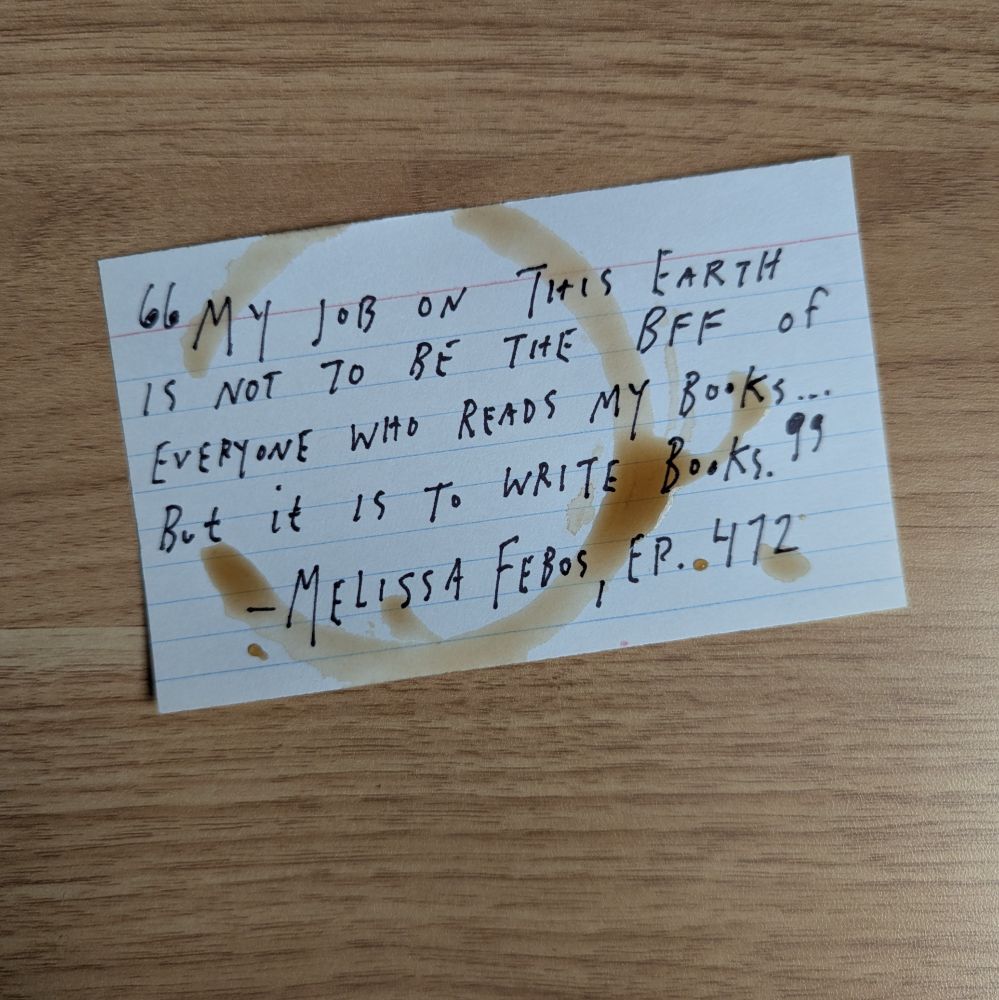 “MY JOB ON THIS EARTH
IS NOT TO BE THE BFF of
EVERYONE WHO READS MY BOOKS...
But it IS TO WRITE BOOKS.”
—MELISSA FEBOS, EP. 472